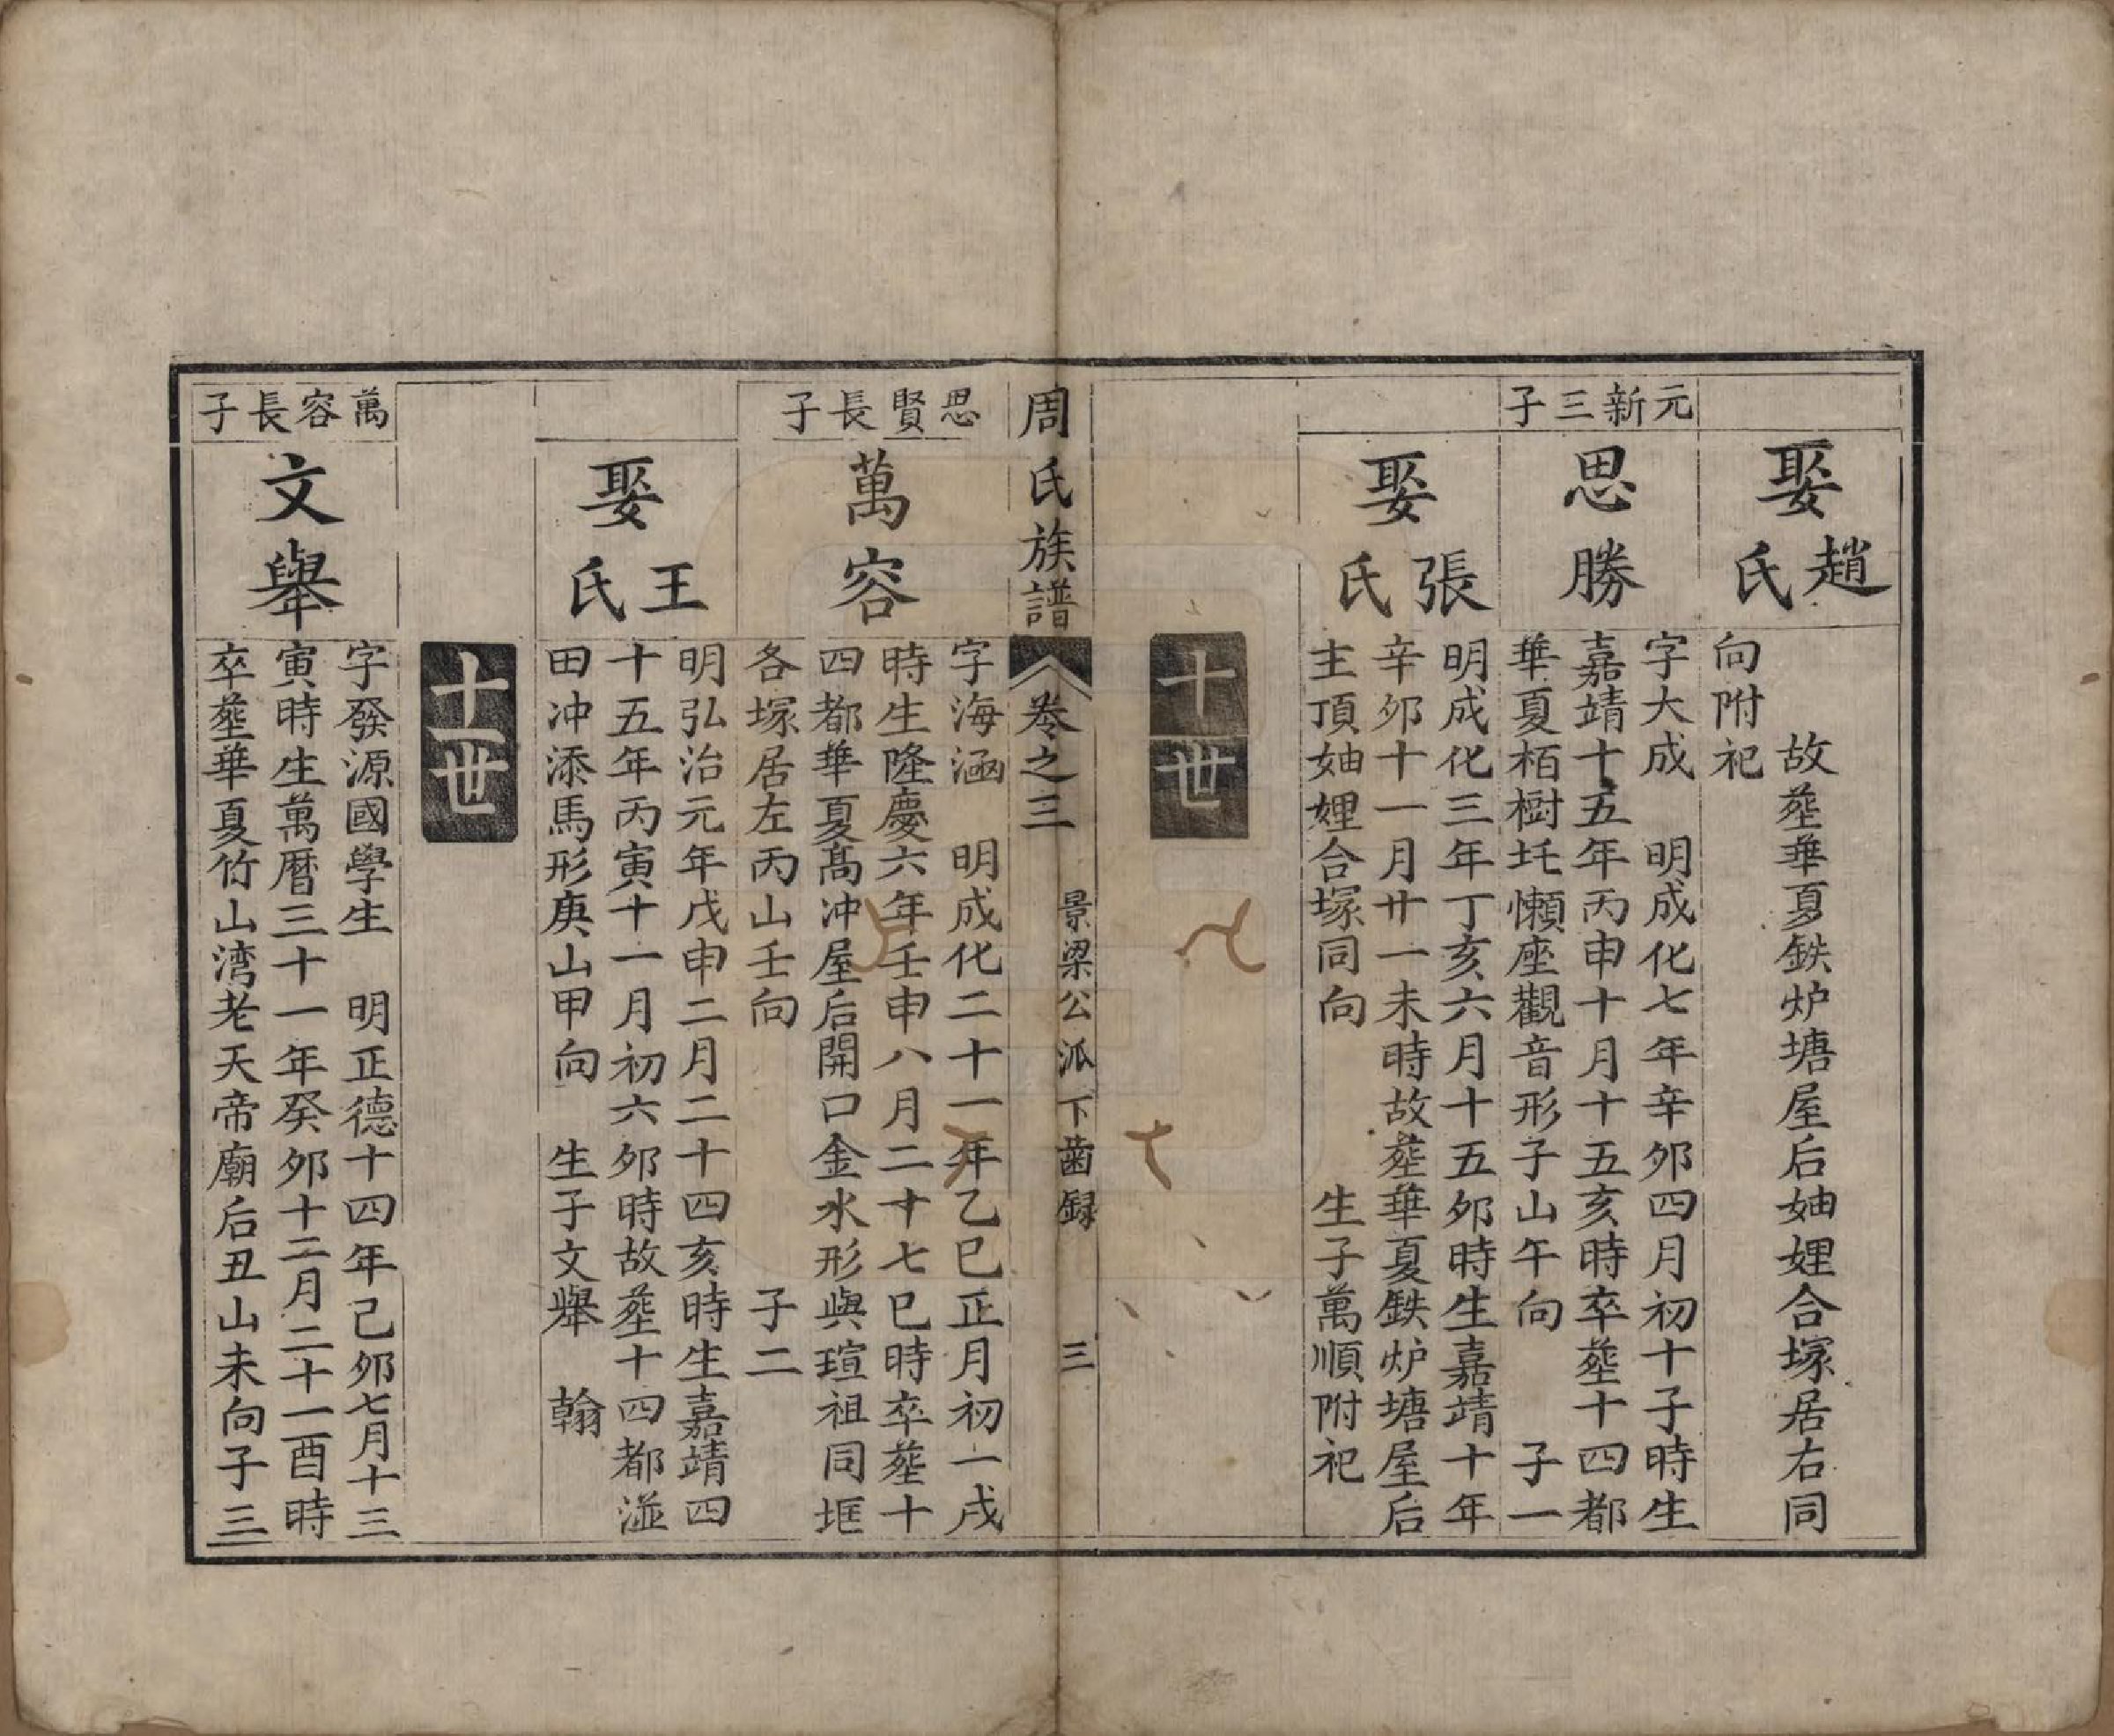 娶趙氏
故塟華夏鉄炉塘屋后妯娌合塚居右同
向附祀
元新三子
思勝
字大成 明成化七年辛夘四月初十子時生
嘉靖十五年丙申十月十五亥時卒塟十四都
華夏栢樹圫懶座觀音形子山午向 子一
娶張氏
明成化三年丁亥六月十五夘時生嘉靖十年
辛夘十一月廿一未時故塟華夏鉄炉塘屋后
主頂妯娌合塚同向 生子萬順附祀
十世
周氏族譜 卷之三 景梁公派下齒録 三
思賢長子
萬容
字海涵 明成化二十一年乙巳正月初一戌
時生隆慶六年壬申八月二十七巳時卒塟十
四都華夏髙冲屋后開口金水形與瑄祖同堐
各塚居左丙山壬向 子二
娶王氏
明弘治元年戊申二月二十四亥時生嘉靖四
十五年丙寅十一月初六夘時故塟十四都湴
田冲添馬形庚山甲向 生子文舉 翰
十一世
萬容長子
文舉
字發源國學生 明正德十四年己夘七月十三
寅時生萬暦三十一年癸夘十二月二十一酉時
卒塟華夏竹山湾老天帝廟后丑山未向子三